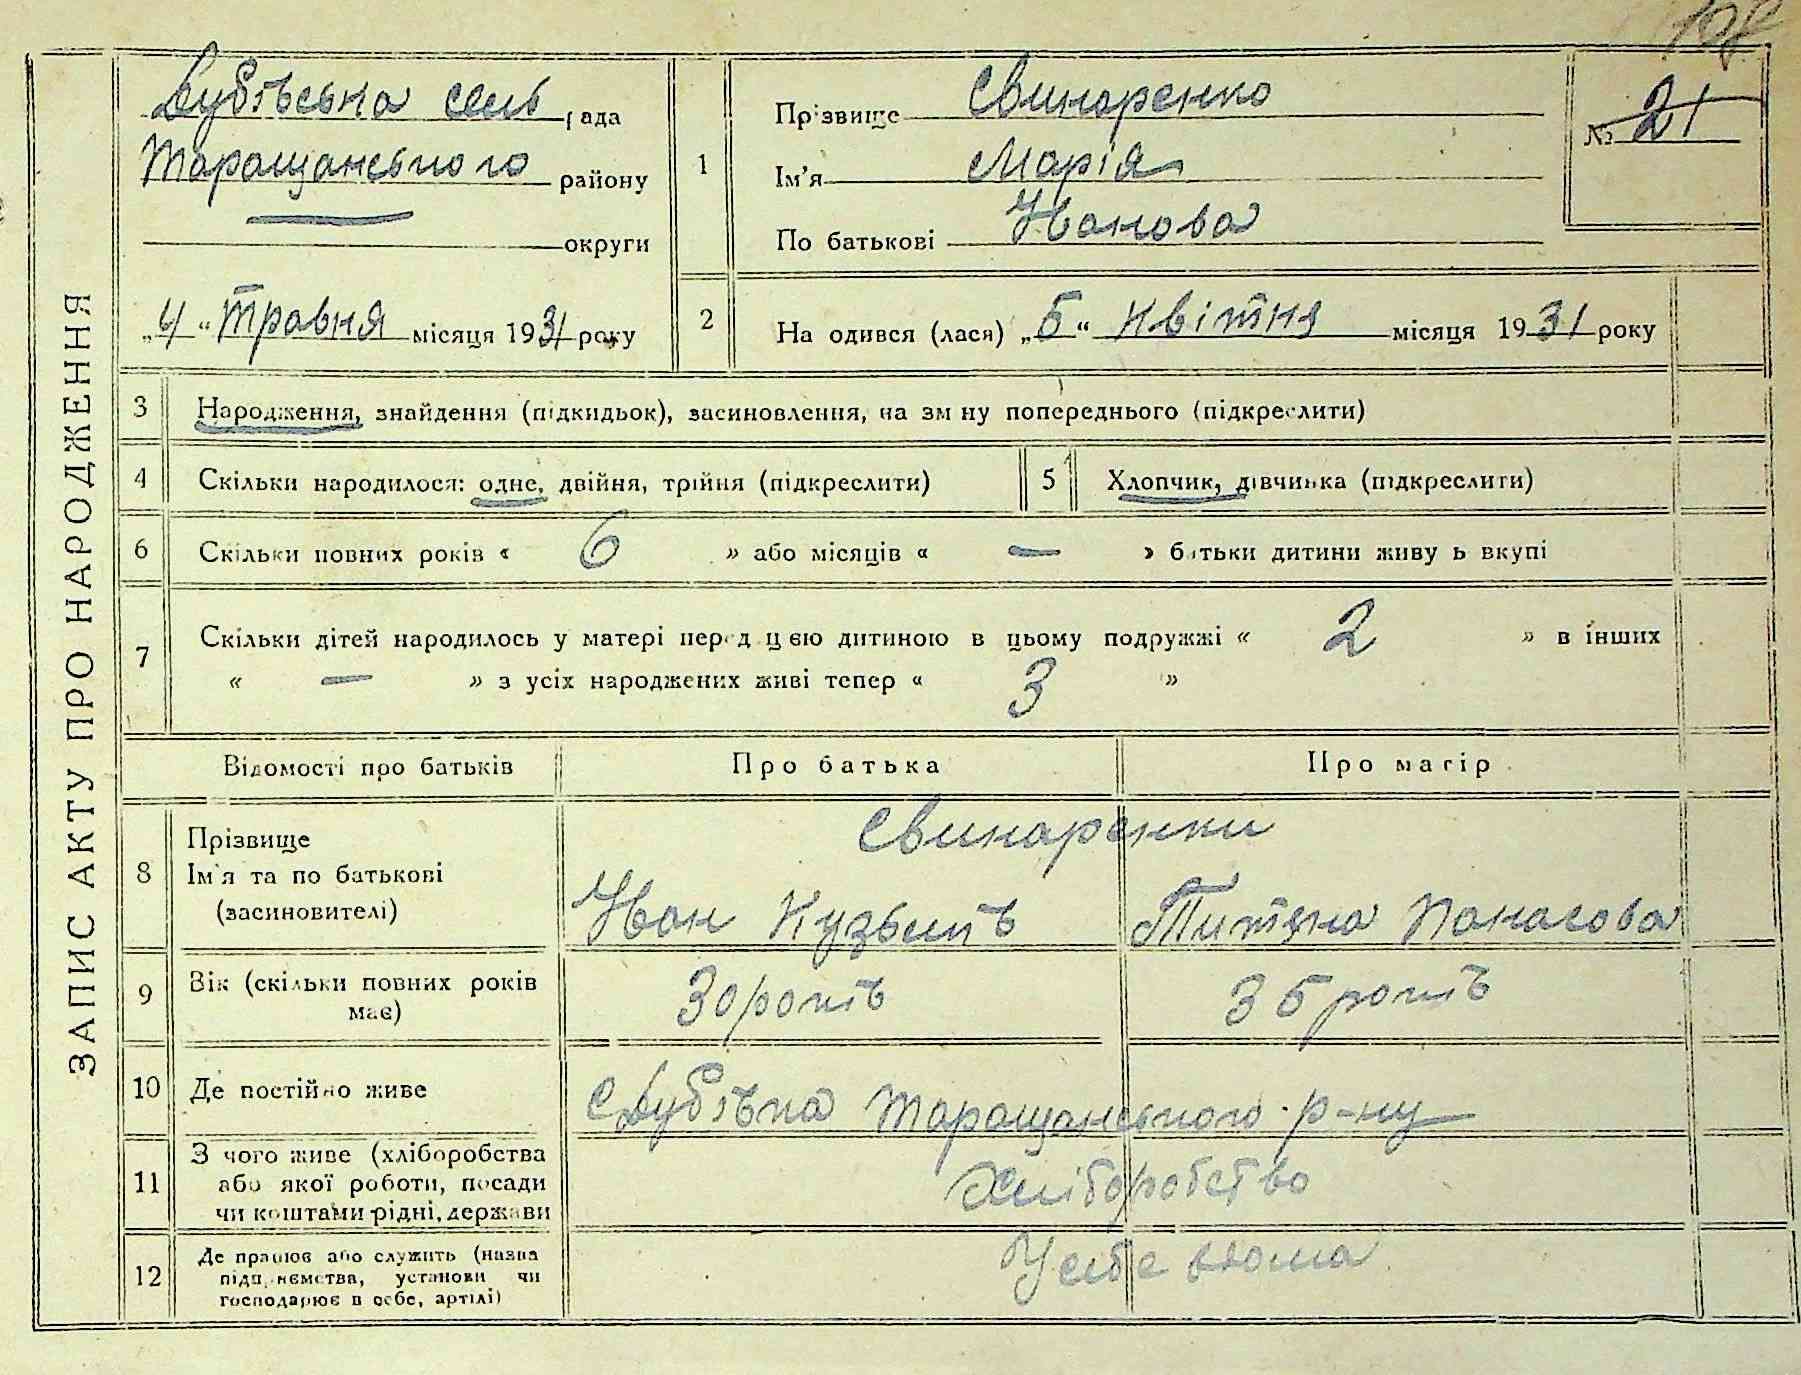 ЗАПИС АКТУ ПРО НАРОДЖЕННЯ
Дубівська сіль рада
Таращанського району
округи
„4“ травня місяця 1931 року
1
Прізвище Свинаренко
Ім'я Марія
По батькові Иванова
№ 21
2
На одився (лася) „5“ квітня місяця 1931 року
3 Народження, знайдення (підкидьок), засиновлення, на зм ну попереднього (підкреслити)
4 Скільки народилося: одне, двійня, трійня (підкреслити)
5 Хлопчик, дівчинка (підкреслити)
6 Скільки повних років « 6 » або місяців « — » батьки дитини живу ь вкупі
7 Скільки дітей народилось у матері перед цією дитиною в цьому подружжі « 2 » в інших
« — » з усіх народжених живі тепер « 3 »
Відомості про батьків Про батька Про матір
8 Прізвище
Ім'я та по батькові
(засиновителі)
Свинаренки
Иван Кузьмів Титяна Панасова
9 Вік (скільки повних років
має)
30 років 35 років
10 Де постійно живе
с Дубівка Таращанського р-ну
11 З чого живе (хліборобства
або якої роботи, посади
чи коштами рідні, держави
Хліборобство
12 Де працює або служить (назва
підп иємства, установи чи
господарює в себе, артілі)
У себе вдома